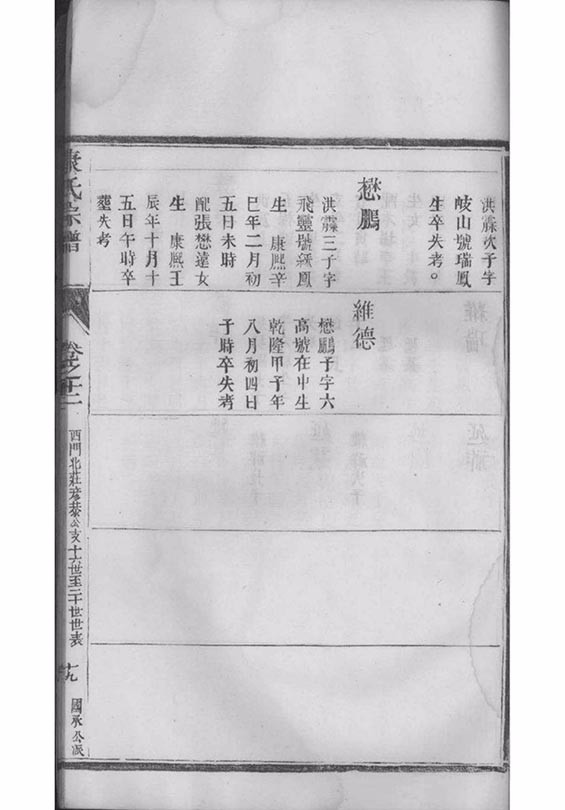 洪霖次子字
岐山號瑞鳳
生卒失考。
懋鵬
洪霖三子字
飛靈號
鳳
生 康熙辛
巳年二月初
五日未時
配張懋遠女
生 康熙壬
辰年十月十
五日午時卒
塟失考
維德
懋鵬子字六
高號在中生
乾隆甲子年
八月初四日
于時卒失考
康氏宗譜
卷之十二
西門北莊彥恭公亥十六世至二十世世表
十九
國承公派